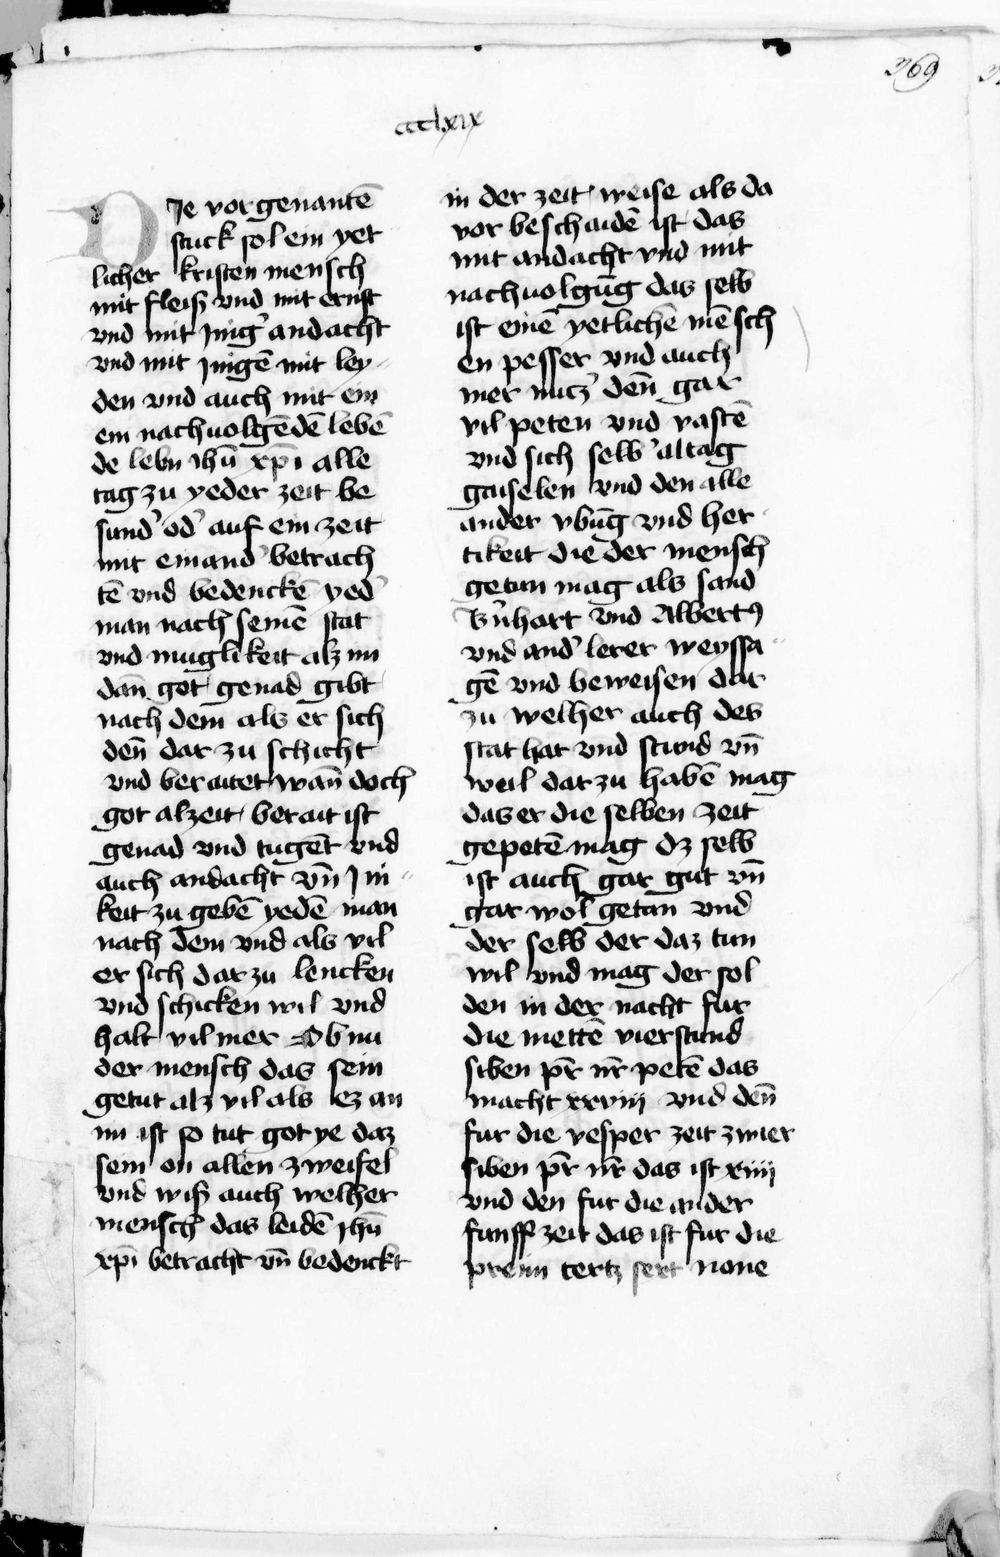 369
ccclxix
DIe vorgenantē
stuck sol ein yet
licher kristen mensch
mit fleisz vnd mit ernst
vnd mit Jnig' andacht
vnd mit Jnigē mit ley-
den vnd auch mit ein
em nachuolgēdē lebē
de lebn ihū xp̄i alle
tag zu yeder zeit be
sund' od' auf ein zeit
mit einand' betrach
tē vnd bedenckē yed'
man nach seinē stat
vnd muglikeit alz im
dan̄ got genad gibt
nach dem als er sich
den̄ dar zu schicht
vnd beraitet wan̄ doch
got alzeit berait ist
genad vnd tugent vnd
auch andacht vn̄ Jni-
keit zu gebē yedē man
nach dem vnd als vil
er sich darzu lencken
vnd schicken wil vnd
halt vil mer Ob nu
der mensch das sein
getut alz vil als ez an
im ist so tut got ye daz
sein on allen zweifel
vnd wisz auch welher
mensch das leidē Jhū
xp̄i betracht vn̄ bedenckt
in der zeit weise als da
vor beschaidē ist das
mit andacht vnd mit
nachuolgūg das selb
ist einē yetlichē mēsch
en pesser vnd auch
mer nutz' den̄ gar
vil peten vnd vastē
vnd sich selb' altag
gaiselen vnd den alle
ander vbūg vnd her
tikeit die der mensch
getun mag als sand
B'nhart vnd Albertꝰ
vnd and' lerer weyssa-
gē vnd beweisen dar
zu welher auch des
stat hat vnd stund vn̄
weil dar zu habē mag
das er die selben zeit
gepetē mag dz selb
ist auch gar gut vn̄
gar wol getan vnd
der selb der daz tun
wil vnd mag der sol
den in der nacht fur
die mettē vierstund
siben pr̄ nr̄ petē das
macht xxviij vnd den̄
fur die vesper zeit zwier
siben pr̄ nr̄ das ist xiiij
vnd den fur die ander
funff zeit das ist fur die
preim tertz sext none